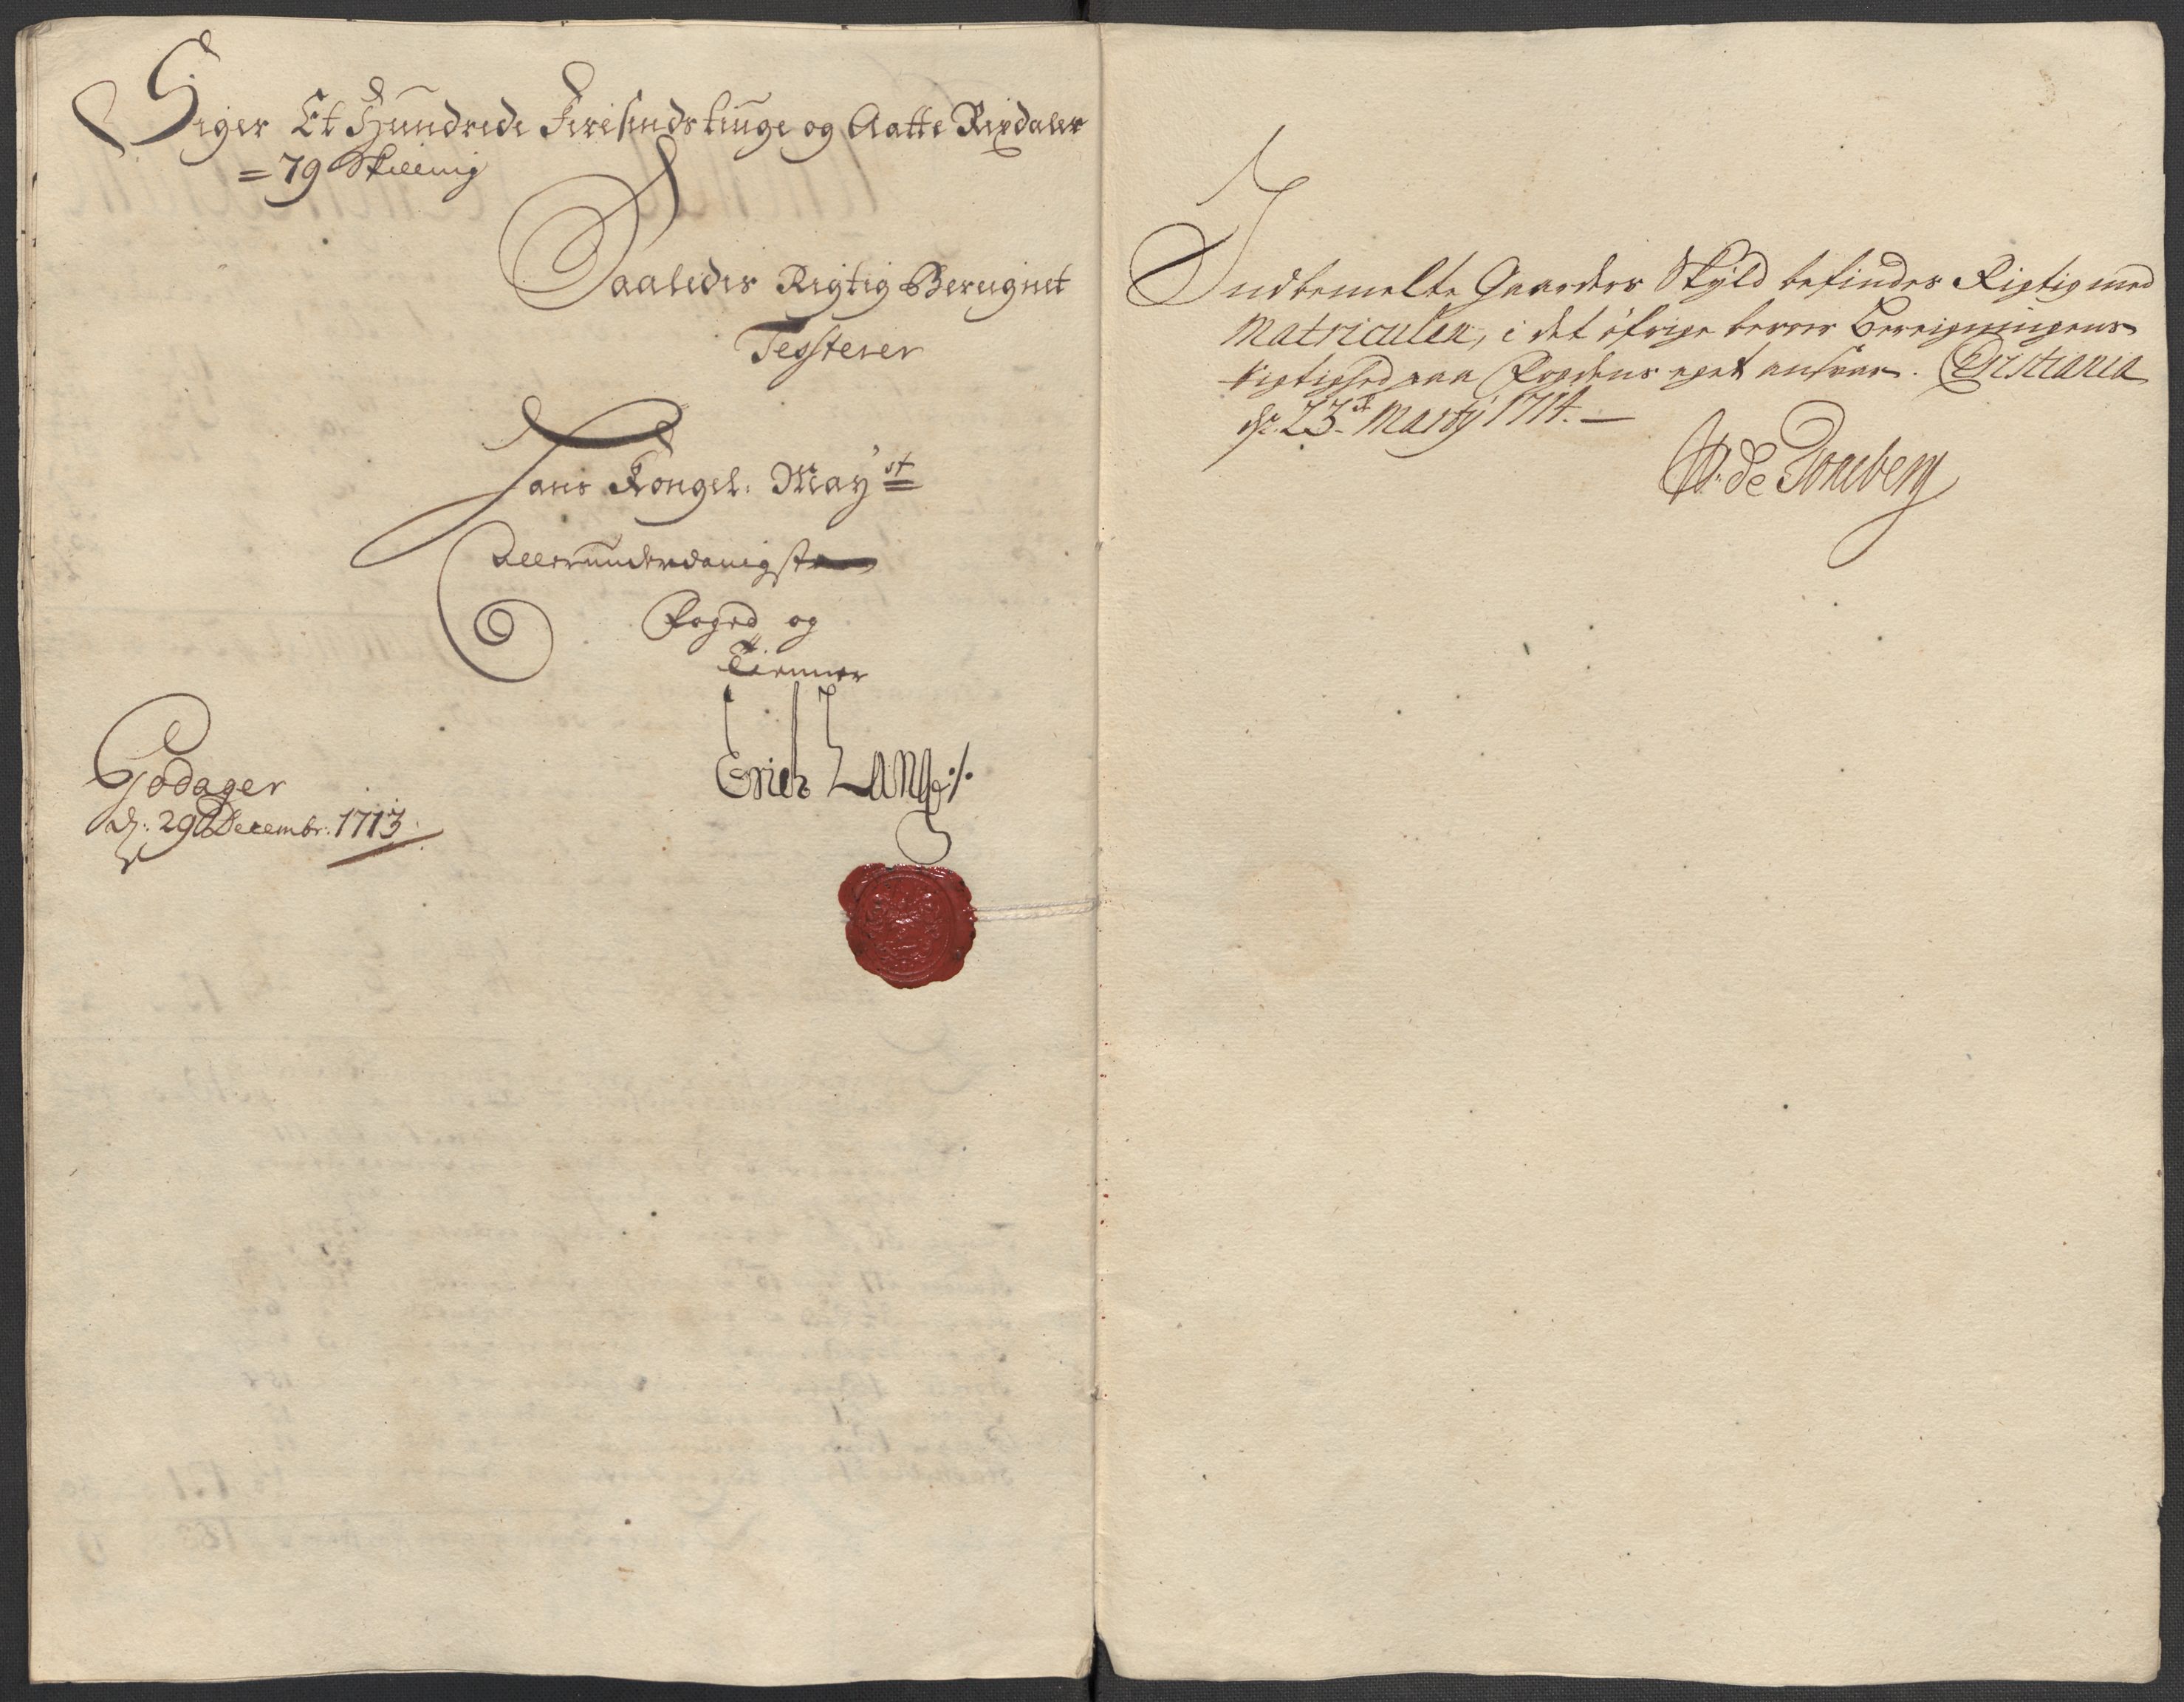 Siger Et Hundrede Firesindstiuge og Aatte Rixdaler
= 79 Skilling
Saaledes Rigtig Beregnet
Testerer
Hans Kongel: May.st
Allerunderdanigste
Foged og
Tienner
Erich Lange ./.
Godager
d: 29 Decembr: 1713.
Indbemelte Gaarders Skyld befindes Rigtig med
Matriculen, i det øfrige beroer Beregningens
rigtighed paa Fogdens eget ansvar. Christiania
d. 23. Martij 1714. —
de Tonsberg